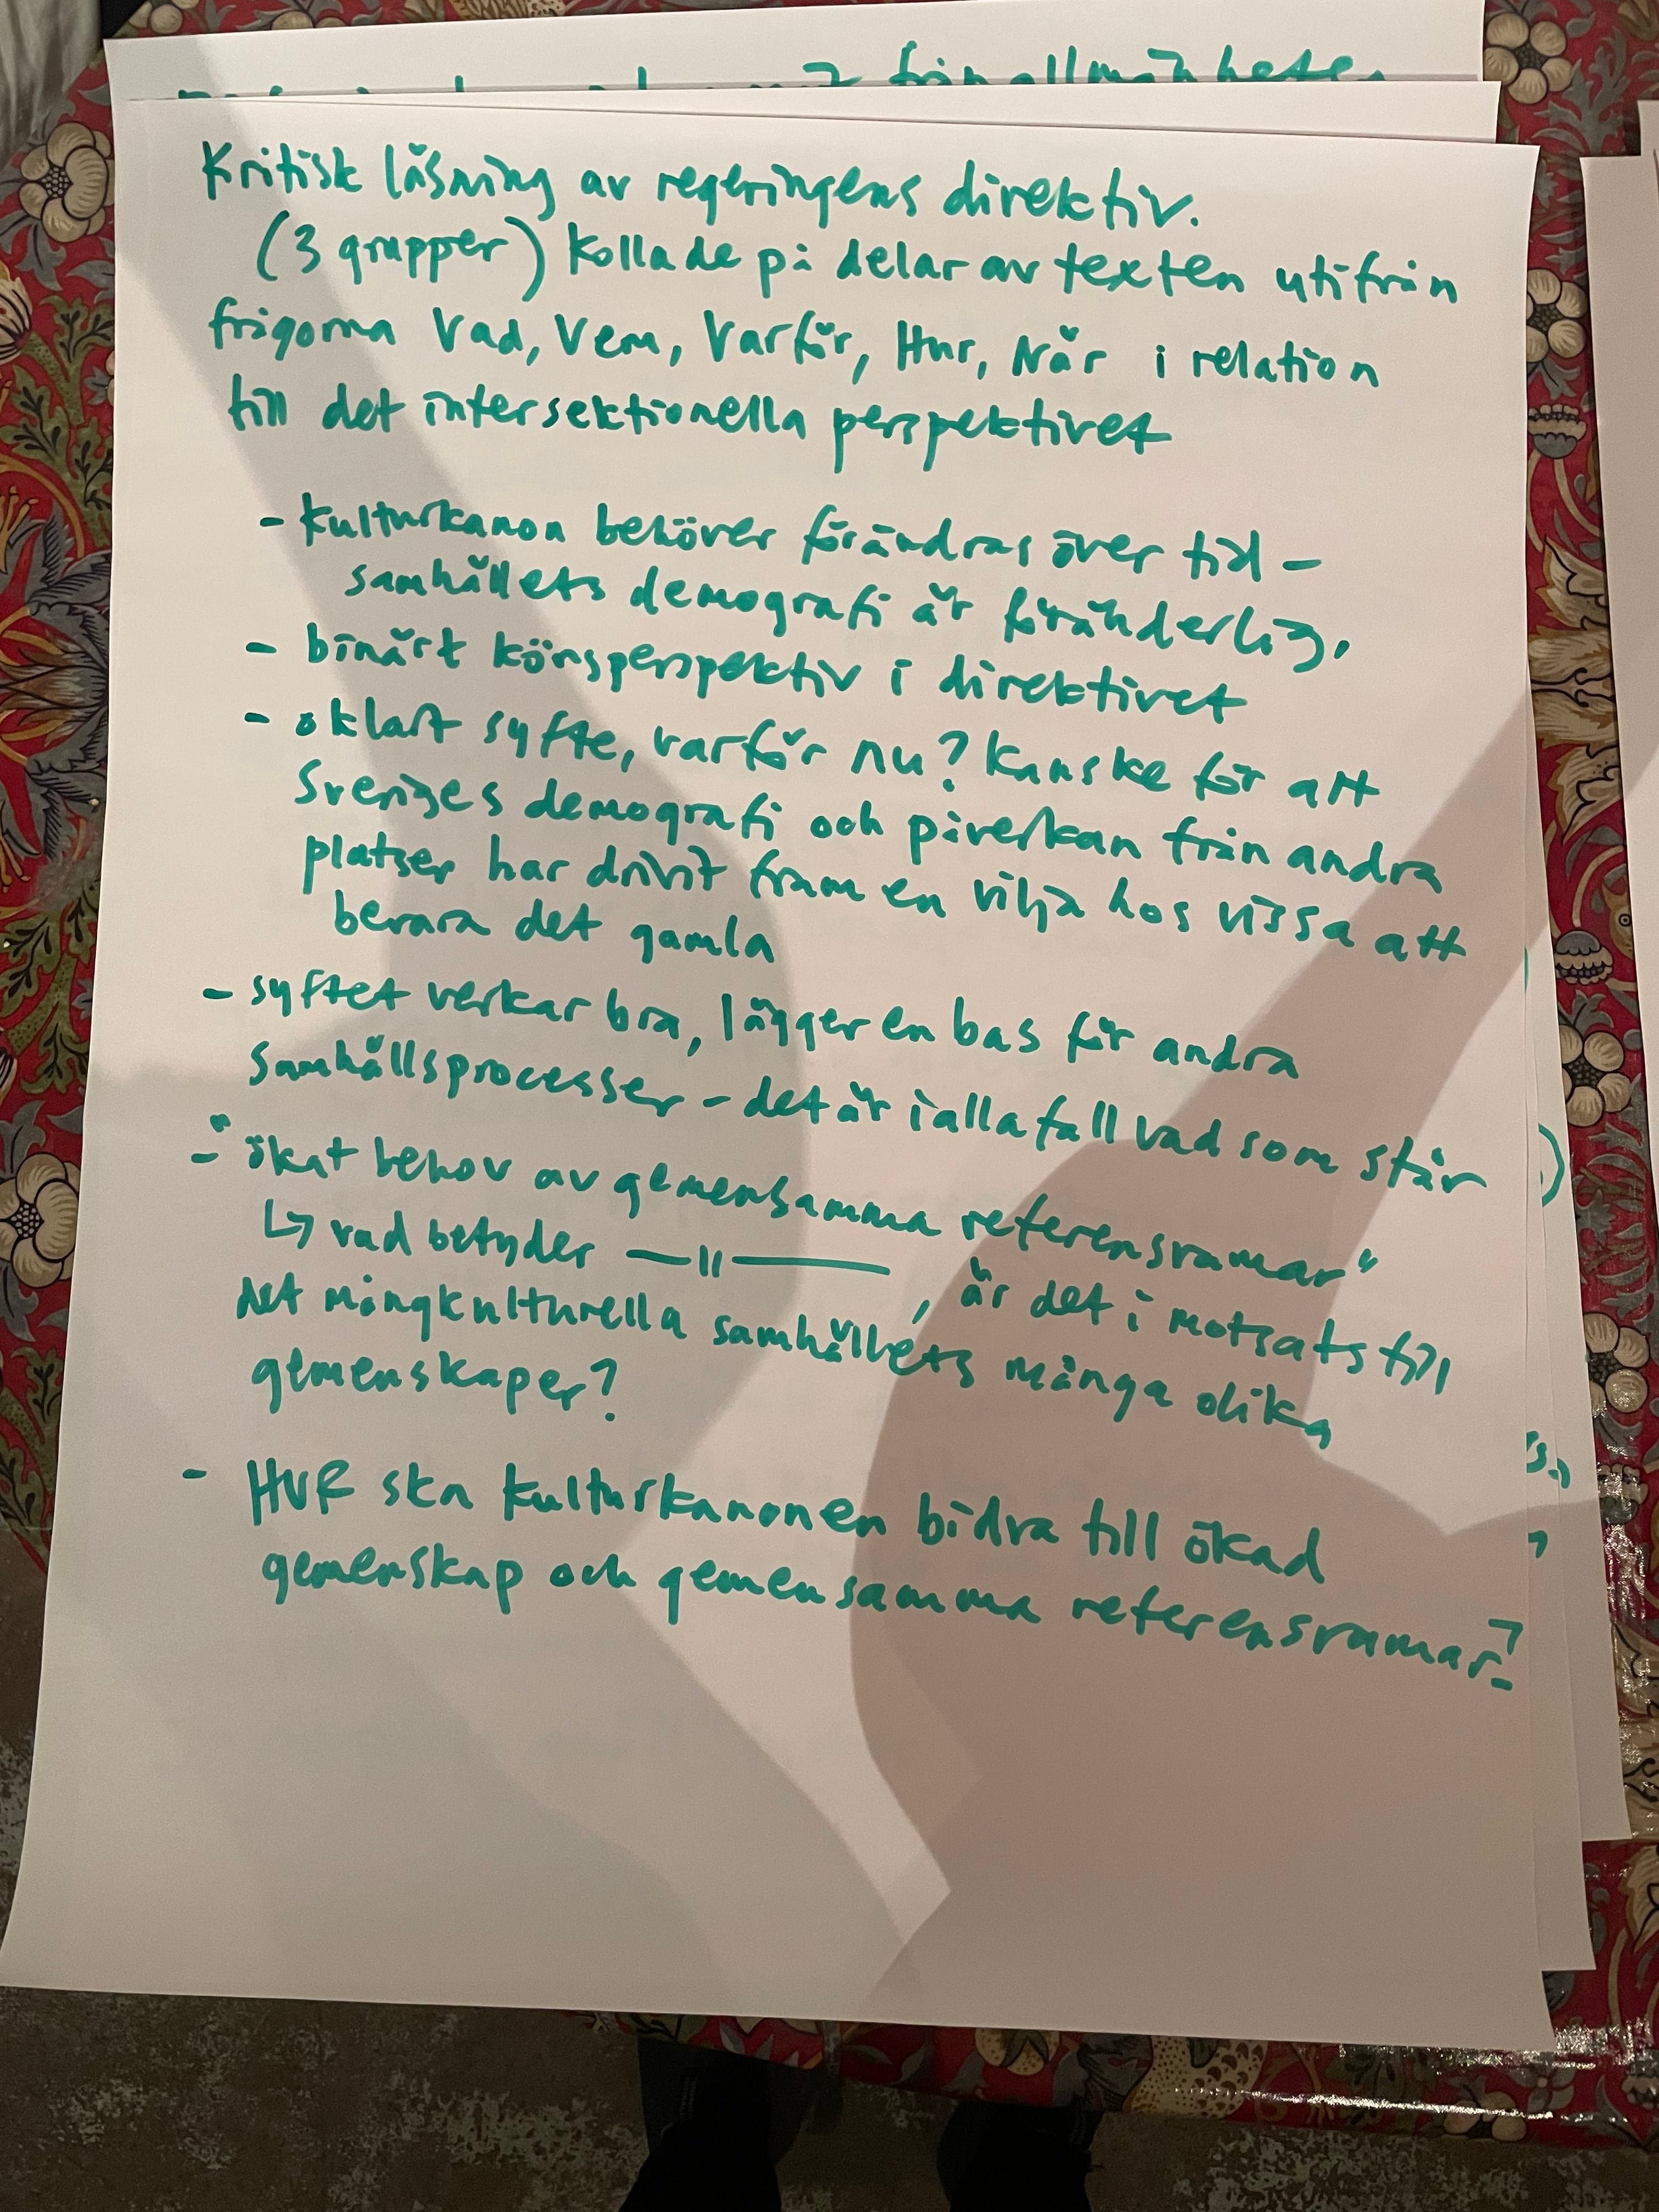 från allmänheten
Kritisk läsning av regeringens direktiv.
(3 grupper) kollade på delar av texten utifrån
frågorna Vad, Vem, Varför, Hur, När i relation
till det intersektionella perspektivet
- kulturkanon behöver förändras över tid -
samhällets demografi är föränderlig.
- binärt könsperspektiv i direktivet
- oklart syfte, varför nu? Kanske för att
Sveriges demografi och påverkan från andra
platser har drivit fram en vilja hos vissa att
bevara det gamla
- syftet verkar bra, lägger en bas för andra
samhällsprocesser - det är iallafall vad som står
- "ökat behov av gemensamma referensramar"
↳ vad betyder —||—, är det i motsats till
det mångkulturella samhällets många olika
gemenskaper?
- HUR ska kulturkanonen bidra till ökad
gemenskap och gemensamma referensramar?